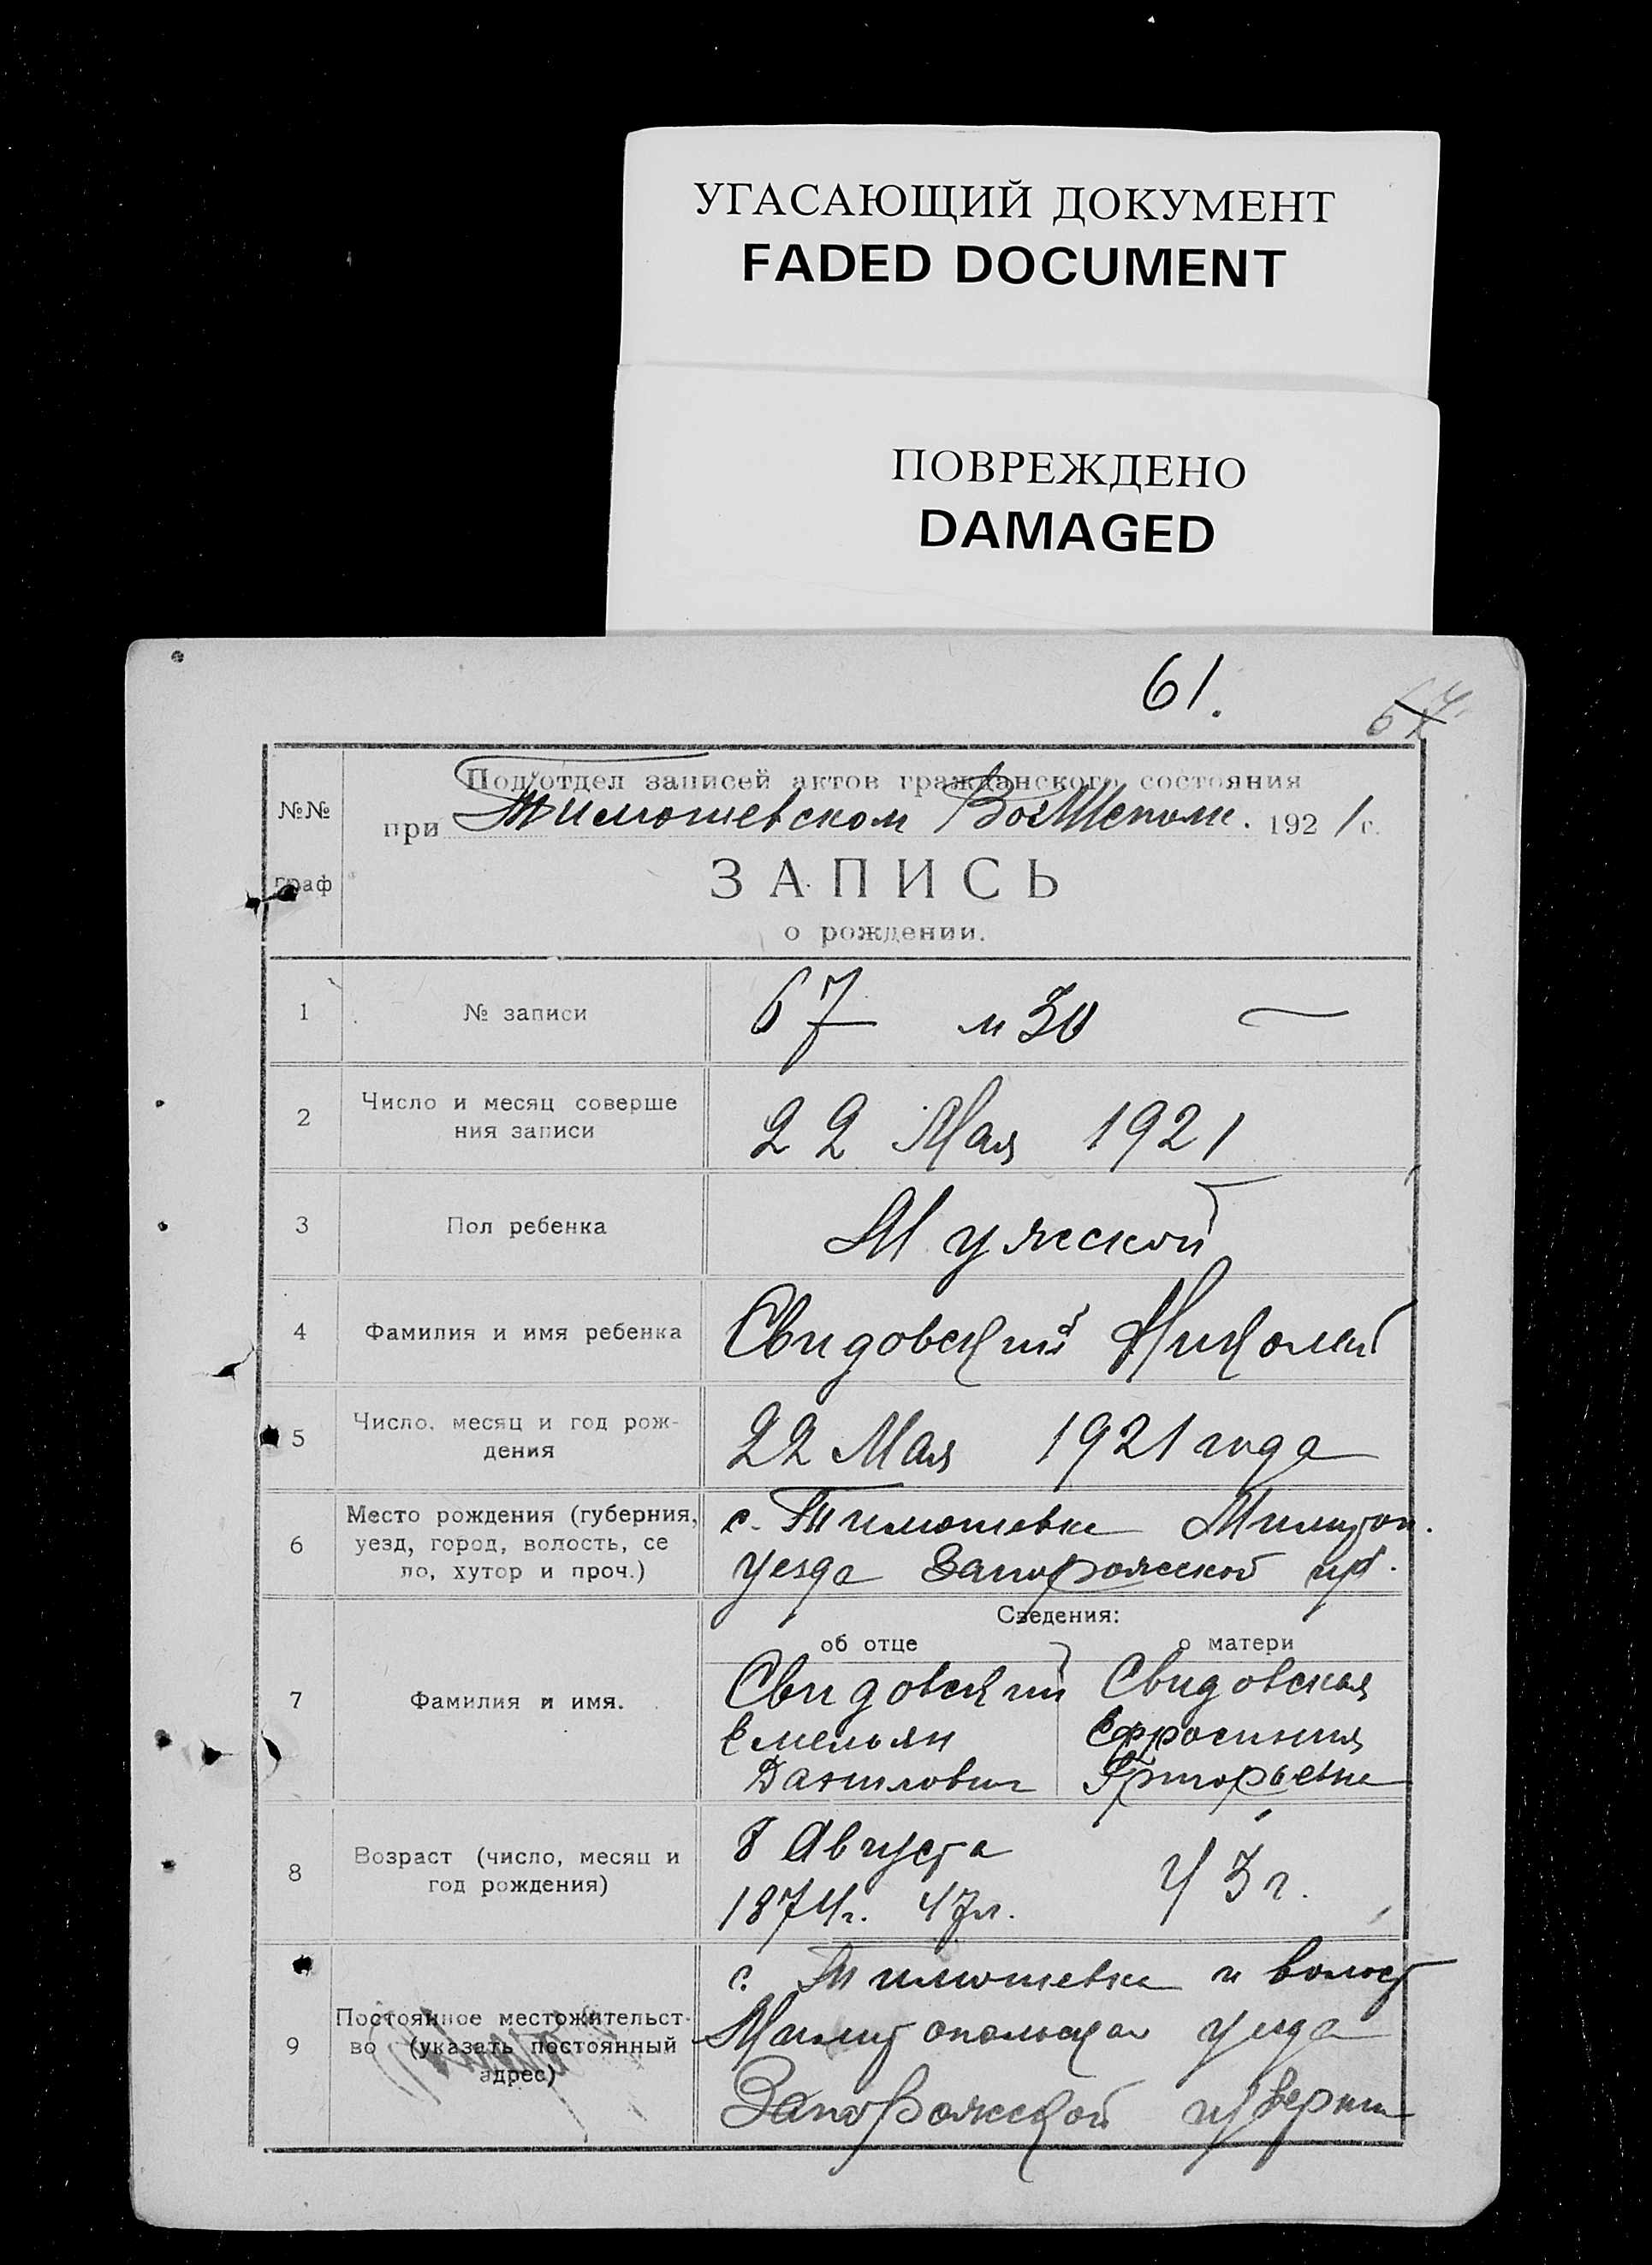 УГАСАЮЩИЙ ДОКУМЕНТ
FADED DOCUMENT
ПОВРЕЖДЕНО
DAMAGED
61.
№№ граф
Подъотдел записей актов гражданского состояния
при Тимошевском 1921 г.
ЗАПИСЬ
о рождении.
1 № записи 67 м 30
2 Число и месяц соверше
ния записи 22 Мая 1921
3 Пол ребенка Мужской
4 Фамилия и имя ребенка Свидовский Николай
5 Число, месяц и год рож-
дения 22 Мая 1921 года
6 Место рождения (губерния,
уезд, город, волость, се
ло, хутор и проч.)
с. Тимошевка Мелитоп.
уезда Запорожской губ.
Сведения:
об отце о матери
7 Фамилия и имя.
Свидовский Свидовская
Емельян Ефросиния
Данилович Григорьевна
8 Возраст (число, месяц и
год рождения)
8 Августа 43 г.
1874 г. 47 л.
9 Постоянное местожительст-
во (указать постоянный
адрес)
с. Тимошевка и волост
Мелитопольская уезда
Запорожской губернии